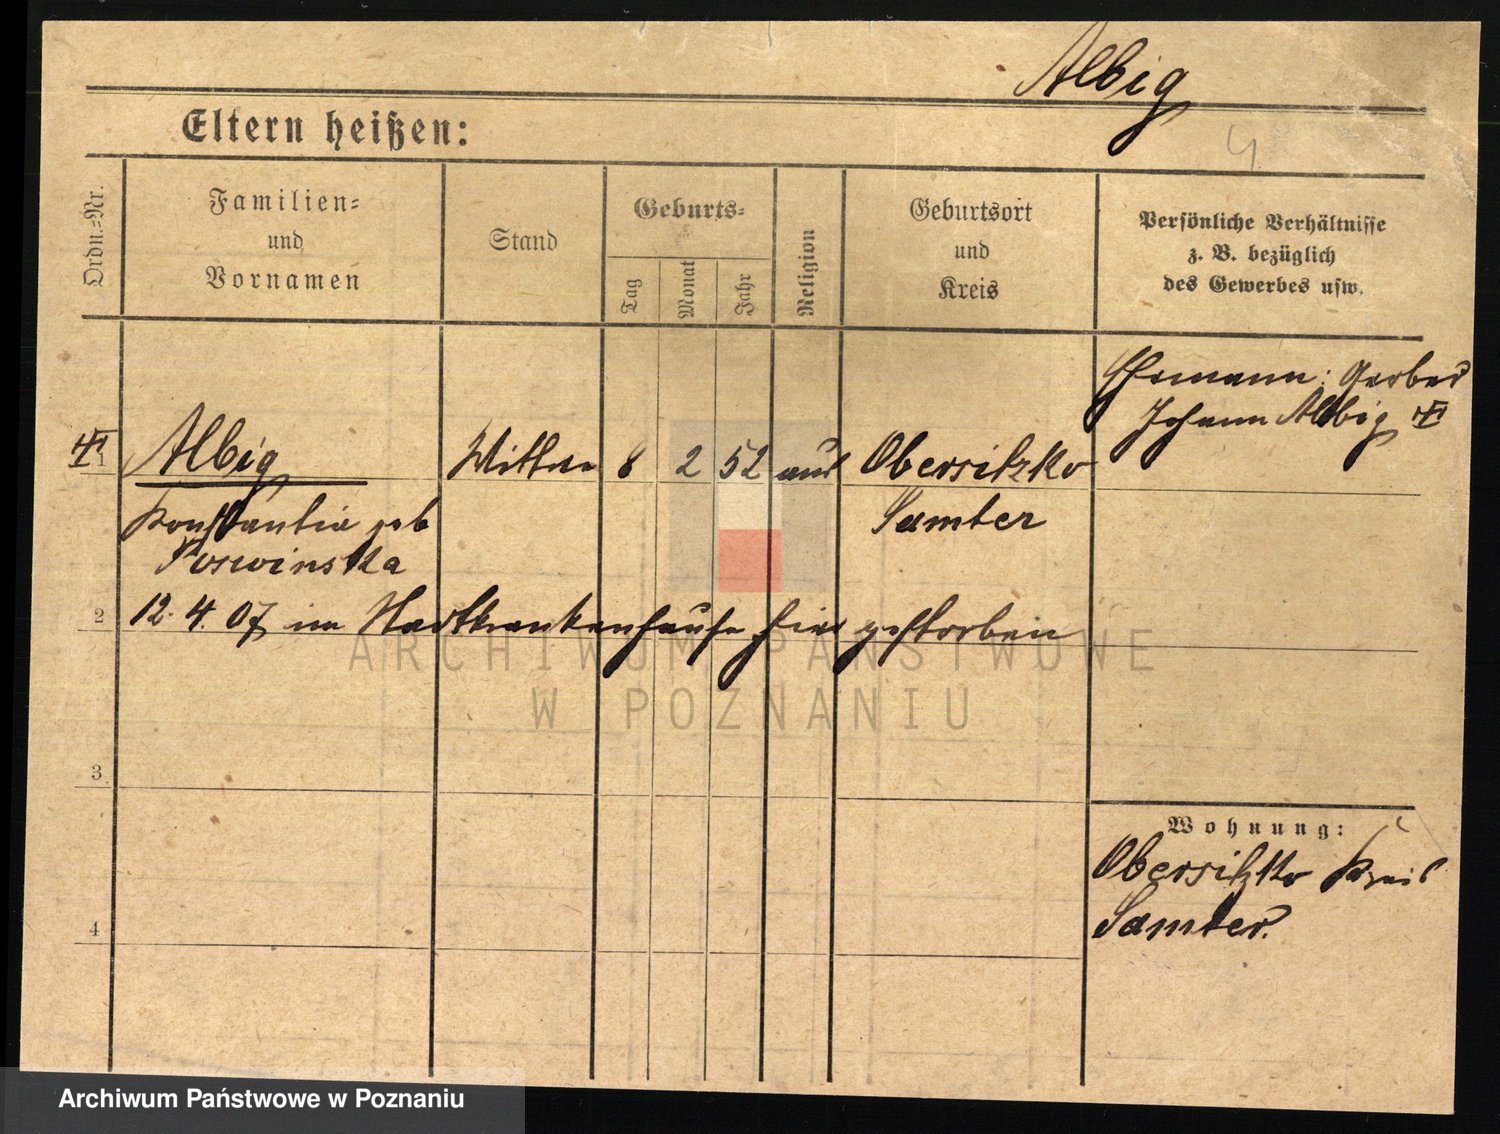 Albig
Eltern heißen:
4.
Ordn.=Nr.
Familien=
und
Vornamen
Stand
Geburts=
Tag
Monat
Jahr
Religion
Geburtsort
und
Kreis
Persönliche Verhältnisse
z. B. bezüglich
des Gewerbes usw.
Ehemann: Gerber
Johann Albig
1
Albig
Wittwe
8
2
52
Obersitzko
Konstantia geb
Samter
2
12. 4. 07 im Stadtkrankenhause hier gestorben
ARCHIWUM PAŃSTWOWE
W POZNANIU
3
Wohnung:
Obersitzko Kreis
Samter.
4
Archiwum Państwowe w Poznaniu